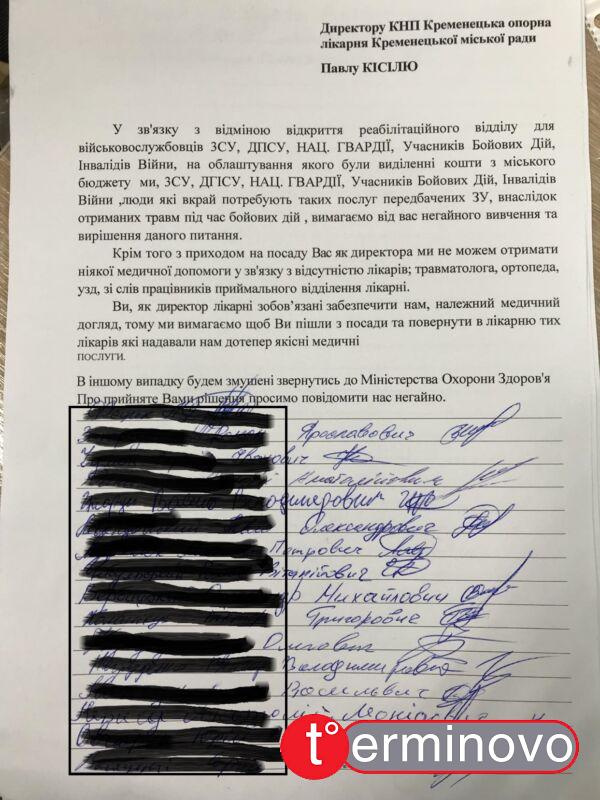 Директору КНП Кременецька опорна
лікарня Кременецької міської ради
Павлу КІСІЛЮ
У зв'язку з відміною відкриття реабілітаційного відділу для
військовослужбовців ЗСУ, ДПСУ, НАЦ. ГВАРДІЇ, Учасників Бойових Дій,
Інвалідів Війни, на облаштування якого були виділенні кошти з міського
бюджету ми, ЗСУ, ДГІСУ, НАЦ. ГВАРДІЇ, Учасників Бойових Дій, Інвалідів
Війни ,люди які вкрай потребують таких послуг передбачених ЗУ, внаслідок
отриманих травм під час бойових дій , вимагаємо від вас негайного вивчення та
вирішення даного питання.
Крім того з приходом на посаду Вас як директора ми не можем отримати
ніякої медичної допомоги у зв'язку з відсутністю лікарів; травматолога, ортопеда,
узд, зі слів працівників приймального відділення лікарні.
Ви, як директор лікарні зобов’язані забезпечити нам, належний медичний
догляд, тому ми вимагаємо щоб Ви пішли з посади та повернути в лікарню тих
лікарів які надавали нам дотепер якісні медичні
послуги.
В іншому випадку будем змушені звернутись до Міністерства Охорони Здоров'я
Про прийняте Вами рішення просимо повідомити нас негайно.
Ярославович
Іванович
Анатолійович
Володимирович
Олександрович
Петрович
Віталійович
Михайлович
Григорович
Олегович
Володимирович
Васильович
t°erminovo